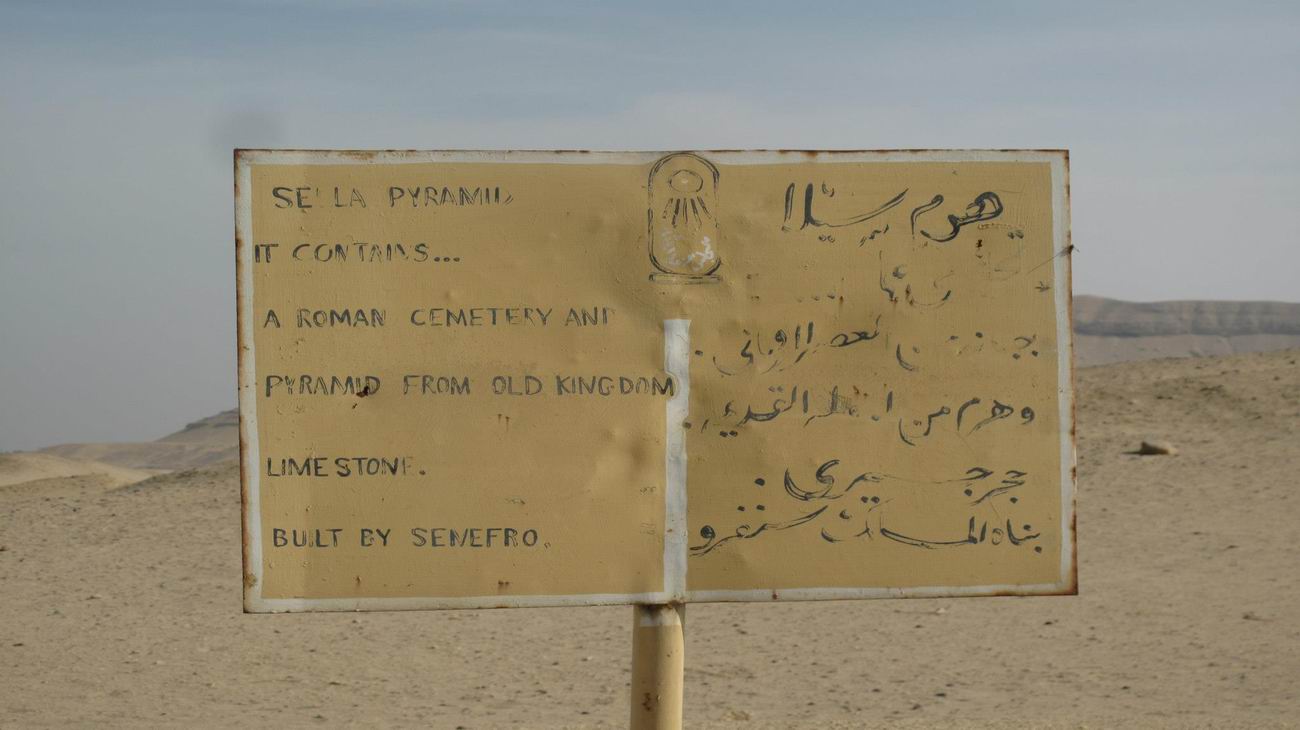 SEILA PYRAMID
IT CONTAINS...
A ROMAN CEMETERY AND
PYRAMID FROM OLD KINGDOM
LIMESTONE.
BUILT BY SENEFRO.
هرم سيلا
العصر
وهرم من القديمة
حجر جيرى
بناه الملك سنفرو